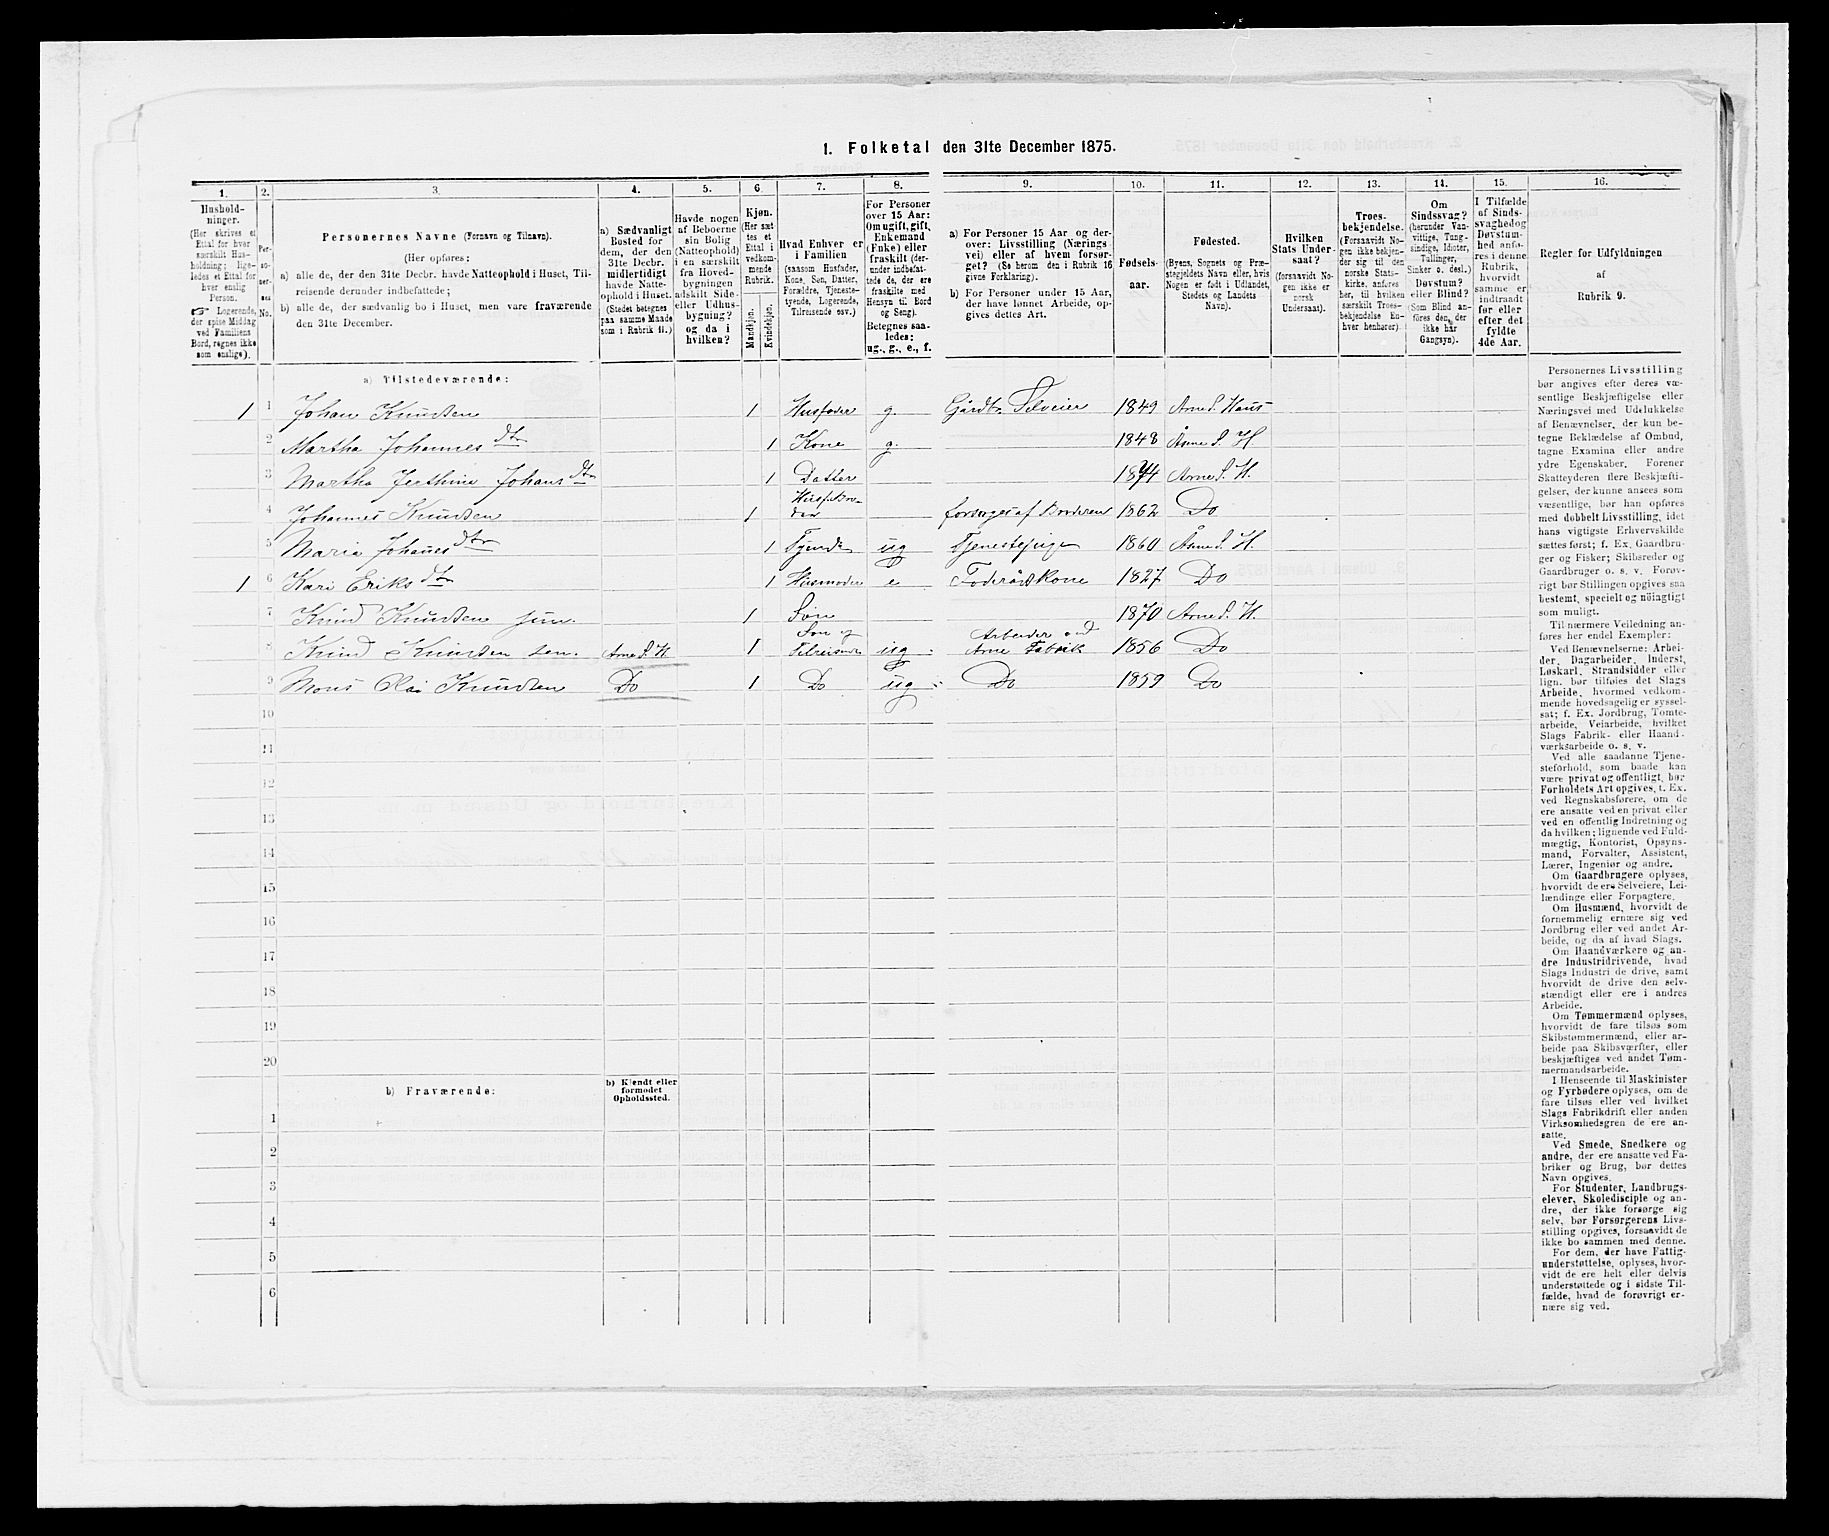 1. Folketal den 31te December 1875.
1. 2. 3. 4. 5. 6. 7. 8. 9. 10. 11. 12. 13. 14. 15. 16.
Hushold-
ninger.
(Her skrives et
Ettal for hver
særskilt Hus-
holdning; lige-
ledes et Ettal for
hver enslig
Person.
☞ Logerende,
der spise Middag
ved Familiens
Bord, regnes ikke
som enslige).
Per-
so-
ner-
nes
No.
Personernes Navne (Fornavn og Tilnavn).
(Her opføres:
a) alle de, der den 31te Decbr. havde Natteophold i Huset, Til-
reisende derunder indbefattede;
b) alle de, der sædvanlig bo i Huset, men vare fraværende
den 31te December.
a) Sædvanligt
Bosted for
dem, der den
31te Decbr.
midlertidigt
havde Natte-
ophold i Huset.
(Stedet betegnes
paa samme Maade
som i Rubrik 11.)
Havde nogen
af Beboerne
sin Bolig
(Natteophold)
i en særskilt
fra Hoved-
bygningen
adskilt Side-
eller Udhus-
bygning?
og da i
hvilken?
Kjøn.
(Her sæt
tes et
Ettal i
vedkom-
mende
Rubrik.
Mandkjøn.
Kvindekjøn.
Hvad Enhver er
i Familien
(saasom Husfader,
Kone, Søn, Datter,
Forældre, Tjeneste-
tyende, Logerende,
Tilreisende osv.)
For Personer
over 15 Aar:
Om ugift, gift,
Enkemand
(Enke) eller
fraskilt (der-
under indbefat-
tede de, der ere
fraskilte med
Hensyn til Bord
og Seng).
Betegnes saa-
ledes:
ug., g., e., f.
a) For Personer 15 Aar og der-
over: Livsstilling (Nærings-
vei) eller af hvem forsør-
get? (Se herom den i Rubrik 16
givne Forklaring).
b) For Personer under 15 Aar,
der have lønnet Arbeide, op-
gives dettes Art.
Fødsels-
aar.
Fødested.
(Byens, Sognets og Præ-
stegjeldets Navn eller, hvis
Nogen er født i Udlandet,
Stedets og Landets
Navn).
Hvilken
Stats Under-
saat?
(forsaavidt No-
gen ikke er
norsk
Undersaat).
Troes-
bekjendelse.
(Forsaavidt No-
gen ikke bekjen-
der sig til den
norske Stats-
kirke, anføres
her, til hvilken
særskilt Troes-
bekjendelse En-
hver henhører).
Om
Sindssvag?
(herunder Van-
vittige, Tung-
sindige, Idioter,
Tullinger,
Sinker o. desl.)
Døvstum?
eller Blind?
(Som Blind an-
føres den, der
ikke har
Gangsyn).
I Tilfælde
af Sinds-
svaghed og
Døvstum-
hed anfø-
res i denne
Rubrik,
hvorvidt
samme er
indtraadt
før eller
efter det
fyldte
4de Aar.
Regler for Udfyldningen
af
Rubrik 9.
a) Tilstedeværende:
1 1 Johan Knudsen 1 Husfader g. Gårdbr. Selveier 1849 Arne S. Haus
2 Martha Johannesdtr 1 Kone g. 1848 Årne S. H
3 Martha Jerthine Johansdtr 1 Datter 1874 Arne S. H.
4 Johannes Knudsen 1 Husf. Bro-
der forsørges af Broderen 1862 Do
5 Maria Johansdtr 1 Tyende ug Tjenestepige 1860 Årne S. H.
1 6 Kari Eriksdtr 1 Husmoder e Føderådskone 1827 Do
7 Knud Knudsen jun. 1 Søn 1870 Arne S. H.
8 Knud Knudsen sen. Arne S. H 1 Søn og
Tilreisende ug. Arbeider ved
Arne Fabrik 1856 Do
9 Mons Olai Knudsen Do 1 Do ug Do 1859 Do
10
11
12
13
14
15
16
17
18
19
20
b) Fraværende:
b) Kjendt eller
formodet
Opholdssted.
1
2
3
4
5
6
Personernes Livsstilling
bør angives efter deres væ-
sentlige Beskjæftigelse eller
Næringsvei med Udelukkelse
af Benævnelser, der kun be-
tegne Beklædelse af Ombud,
tagne Examina eller andre
ydre Egenskaber. Forener
Skatteyderen flere Beskjæfti-
gelser, der kunne ansees som
væsentlige, bør han opføres
med dobbelt Livsstilling, idet
hans vigtigste Erhvervskilde
sættes først; f. Ex. Gaardbru-
ger og Fisker; Skibsreder og
Gaardbruger o. s. v. Forøv-
rigt bør Stillingen opgives saa
bestemt, specielt og nöiagtigt
som muligt.
Til nærmere Veiledning an-
føres her endel Exempler:
Ved Benævnelserne: Arbei-
der, Dagarbeider, Inderst,
Løskarl, Strandsidder eller
lign. bør tilføies det Slags
Arbeide, hvormed vedkom-
mende hovedsagelig er syssel-
sat; f. Ex. Jordbrug, Tomte-
arbeide, Veiarbeide, hvilket
Slags Fabrik- eller Haand-
værksarbeide o. s. v.
Ved alle saadanne Tjene-
steforhold, som baade kan
være privat og offentligt, bør
Forholdets Art opgives, t. Ex.
ved Regnskabsførere, om de
ere ansatte ved en privat eller
ved en offentlig Indretning og
da hvilken; lignende ved Fuld-
mægtig, Kontorist, Opsyns-
mand, Forvalter, Assistent,
Lærer, Ingeniør og andre.
Om Gaardbrugere oplyses,
hvorvidt de ere Selveiere, Lei-
lændinge eller Forpagtere.
Om Husmænd, hvorvidt de
fornemmelig ernære sig ved
Jordbrug eller ved andet Ar-
beide, og da af hvad Slags.
Om Haandværkere og an-
dre Industridrivende, hvad
Slags Industri de drive, samt
hvorvidt de drive den selv-
stændigt eller ere i andres
Arbeide.
Om Tømmermænd oplyses,
hvorvidt de fare tilsøs som
Skibstømmermænd, eller ar-
beide paa Skibsværfter, eller
beskjæftiges ved andet Tøm-
mermandsarbeide.
I Henseende til Maskinister
og Fyrbødere oplyses, om de
fare tilsøs eller ved hvilket
Slags Fabrikdrift eller anden
Virksomhedsgren de ere an-
satte.
Ved Smede, Snedkere og
andre, der ere ansatte ved Fa-
briker og Brug, bør dettes
Navn opgives.
For Studenter, Landbrugs-
elever, Skoledisciple og an-
dre, der ikke forsørge sig
selv, bør Forsørgerens Livs-
stilling opgives, forsaavidt de
ikke bo sammen med denne.
For dem, der have Fattig-
understøttelse, oplyses, hvor-
vidt de ere helt eller delvis
understøttede og i sidste Til-
fælde, hvad de forøvrigt er-
nære sig ved.